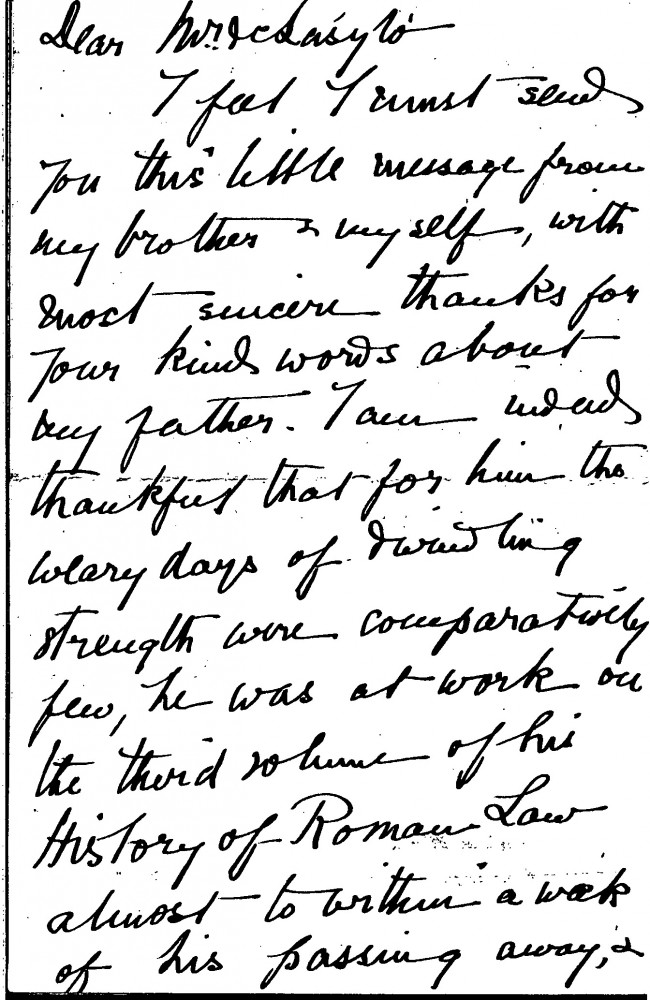 Dear Mr. de László
I feel I must send
you this little message from
my brother & myself, with
most sincere thanks for
your kind words about
my father. I am indeed
thankful that for him the
weary days of dwindling
strength were comparatively
few, he was at work on
the third volume of his
History of Roman Law
almost to within a week
of his passing away, &